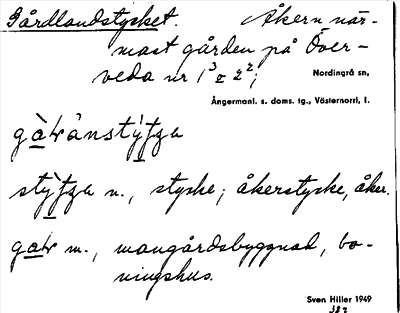 Gårdlandstycket. Åkern när-
mast gården på Över-
veda nr 1³ o 2²;
Nordingrå sn,
Ångermanl. s. doms. tg., Västernorrl. l.
stycke; åkerstycke, åker.
m., mangårdsbyggnad, bo-
ningshus.
Sven Hiller 1949